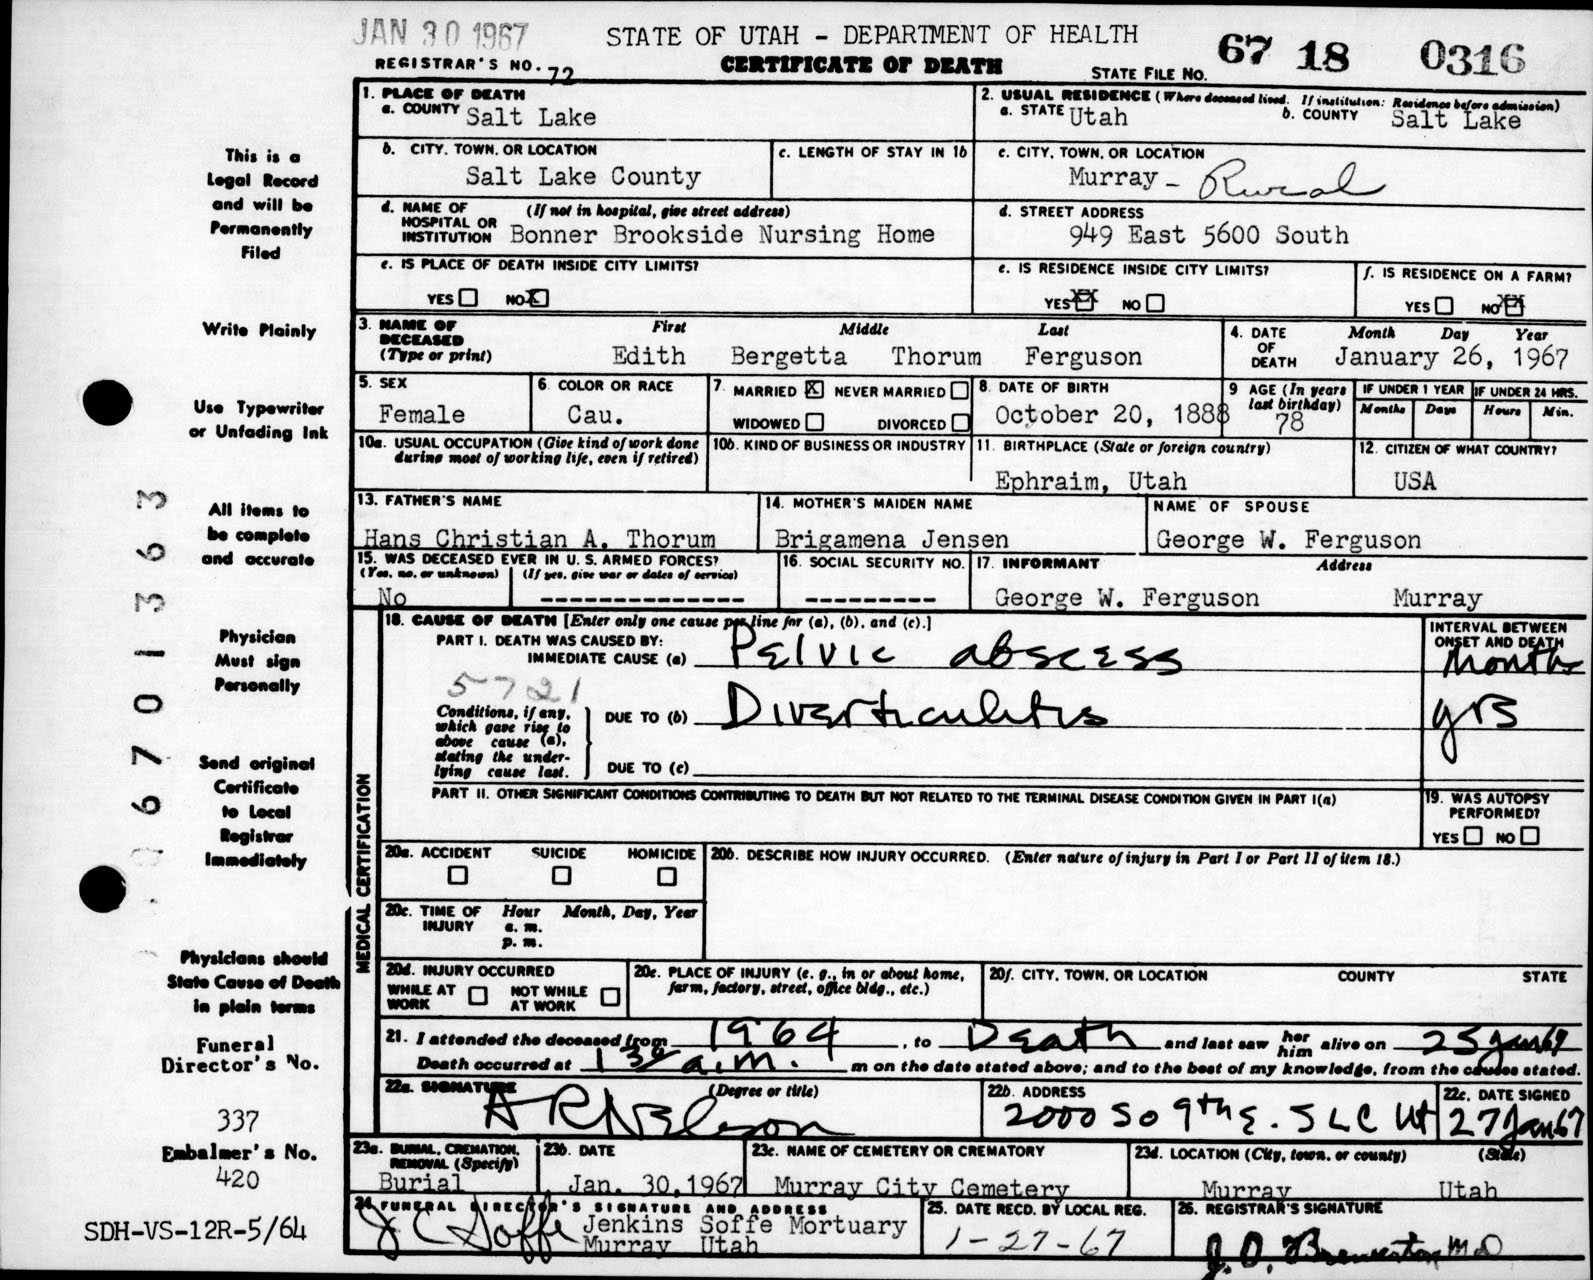 JAN 30 1967
STATE OF UTAH - DEPARTMENT OF HEALTH
CERTIFICATE OF DEATH
REGISTRAR'S NO. 72
STATE FILE NO. 67 18 0316
1. PLACE OF DEATH
a. COUNTY Salt Lake
2. USUAL RESIDENCE (Where deceased lived. If institution: Residence before admission)
a. STATE Utah b. COUNTY Salt Lake
b. CITY, TOWN, OR LOCATION
Salt Lake County
c. LENGTH OF STAY IN 1b
c. CITY, TOWN, OR LOCATION
Murray - Rural
d. NAME OF HOSPITAL OR INSTITUTION (If not in hospital, give street address)
Bonner Brookside Nursing Home
d. STREET ADDRESS
949 East 5600 South
e. IS PLACE OF DEATH INSIDE CITY LIMITS?
YES NO X
e. IS RESIDENCE INSIDE CITY LIMITS?
YES XX NO
f. IS RESIDENCE ON A FARM?
YES NO XX
3. NAME OF DECEASED (Type or print)
First Middle Last
Edith Bergetta Thorum Ferguson
4. DATE OF DEATH
Month Day Year
January 26, 1967
5. SEX
Female
6. COLOR OR RACE
Cau.
7. MARRIED X NEVER MARRIED
WIDOWED DIVORCED
8. DATE OF BIRTH
October 20, 1888
9 AGE (In years last birthday)
78
IF UNDER 1 YEAR
Months Days
IF UNDER 24 HRS.
Hours Min.
10a. USUAL OCCUPATION (Give kind of work done during most of working life, even if retired)
10b. KIND OF BUSINESS OR INDUSTRY
11. BIRTHPLACE (State or foreign country)
Ephraim, Utah
12. CITIZEN OF WHAT COUNTRY?
USA
13. FATHER'S NAME
Hans Christian A. Thorum
14. MOTHER'S MAIDEN NAME
Brigamena Jensen
NAME OF SPOUSE
George W. Ferguson
15. WAS DECEASED EVER IN U. S. ARMED FORCES?
(Yes, no, or unknown) (If yes, give war or dates of service)
No --------------
16. SOCIAL SECURITY NO.
---------
17. INFORMANT Address
George W. Ferguson Murray
MEDICAL CERTIFICATION
18. CAUSE OF DEATH [Enter only one cause per line for (a), (b), and (c).]
INTERVAL BETWEEN ONSET AND DEATH
PART I. DEATH WAS CAUSED BY:
IMMEDIATE CAUSE (a) Pelvic abscess months
5721
Conditions, if any, which gave rise to above cause (a), stating the underlying cause last.
DUE TO (b) Diverticulitis yrs
DUE TO (c)
PART II. OTHER SIGNIFICANT CONDITIONS CONTRIBUTING TO DEATH BUT NOT RELATED TO THE TERMINAL DISEASE CONDITION GIVEN IN PART I(a)
19. WAS AUTOPSY PERFORMED?
YES NO
20a. ACCIDENT SUICIDE HOMICIDE
20b. DESCRIBE HOW INJURY OCCURRED. (Enter nature of injury in Part I or Part II of item 18.)
20c. TIME OF INJURY Hour Month, Day, Year
a. m.
p. m.
20d. INJURY OCCURRED
WHILE AT WORK NOT WHILE AT WORK
20e. PLACE OF INJURY (e. g., in or about home, farm, factory, street, office bldg., etc.)
20f. CITY, TOWN, OR LOCATION COUNTY STATE
21. I attended the deceased from 1964, to Death and last saw her him alive on 25 Jan 67
Death occurred at 1 30 a.m. m on the date stated above; and to the best of my knowledge, from the causes stated.
22a. SIGNATURE (Degree or title)
A R Nelson
22b. ADDRESS
2000 So 9th E. SLC Ut
22c. DATE SIGNED
27 Jan 67
23a. BURIAL, CREMATION, REMOVAL (Specify)
Burial
23b. DATE
Jan. 30, 1967
23c. NAME OF CEMETERY OR CREMATORY
Murray City Cemetery
23d. LOCATION (City, town, or county) (State)
Murray Utah
24 FUNERAL DIRECTOR'S SIGNATURE AND ADDRESS
J C Soffe Jenkins Soffe Mortuary
Murray Utah
25. DATE RECD. BY LOCAL REG.
1-27-67
26. REGISTRAR'S SIGNATURE
J. D. Brewerton M D
This is a
Legal Record
and will be
Permanently
Filed
Write Plainly
Use Typewriter
or Unfading Ink
All items to
be complete
and accurate
Physician
Must sign
Personally
Send original
Certificate
to Local
Registrar
Immediately
Physicians should
State Cause of Death
in plain terms
Funeral
Director's No.
337
Embalmer's No.
420
SDH-VS-12R-5/64